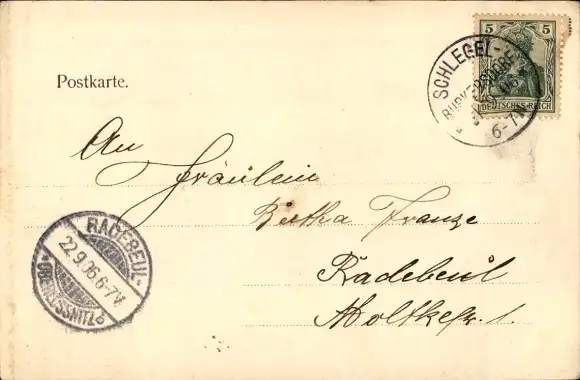 5 5
DEUTSCHES REICH
SCHLEGEL-
BURKERSDORF
6-7V
Postkarte.
An
Fräulein
Bertha Franze
Radebeul
Moltkestr. 1.
RADEBEUL
22.9.06.6-7V.
OBERLÖSSNITZ